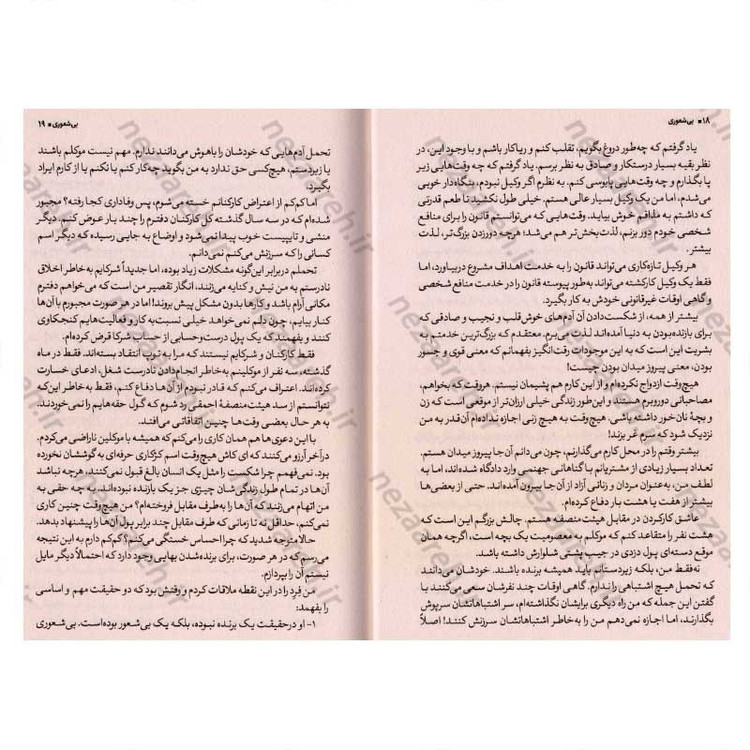 ۱۸ ■ بی‌شعوری
یاد گرفتم که چه‌طور دروغ بگویم، تقلب کنم و ریاکار باشم و با وجود این، در
نظر بقیه بسیار درستکار و صادق به نظر برسم. یاد گرفتم که چه وقت‌هایی زیر
پا بگذارم و چه وقت‌هایی پابوسی کنم. به نظرم اگر وکیل نبودم، بنگاه‌دار خوبی
می‌شدم، اما من یک وکیل بسیار عالی هستم. خیلی طول نکشید تا طعم قدرتی
که داشتم به مذاقم خوش بیاید. وقت‌هایی که می‌توانستم قانون را برای منافع
شخصی خودم دور بزنم، لذت‌بخش‌تر هم می‌شد؛ هرچه دورزدن بزرگ‌تر، لذت
بیشتر.
هر وکیل تازه‌کاری می‌تواند قانون را به خدمت اهداف مشروع دربیاورد، اما
فقط یک وکیل کارکشته می‌تواند به‌طور پیوسته قانون را در خدمت منافع شخصی
و گاهی اوقات غیرقانونی خودش به کار بگیرد.
بیشتر از همه، از شکست‌دادن آن آدم‌های خوش‌قلب و نجیب و صادقی که
برای بازنده‌بودن به دنیا آمده‌اند لذت می‌برم. معتقدم که بزرگ‌ترین خدمتم به
بشریت این است که به این موجودات رقت‌انگیز بفهمانم که معنی قوی و جسور
بودن، معنی پیروز میدان بودن چیست!
هیچ‌وقت ازدواج نکرده‌ام و از این کارم هم پشیمان نیستم. هروقت که بخواهم،
مصاحبانی دوروبرم هستند و این‌طور زندگی خیلی ارزان‌تر از موقعی است که زن
و بچهٔ نان‌خور داشته باشی. هیچ‌وقت به هیچ زنی اجازه نداده‌ام آن‌قدر به من
نزدیک شود که سرم غر بزند!
بیشتر وقتم را در محل کارم می‌گذرانم، چون می‌دانم آن‌جا پیروز میدان هستم.
تعداد بسیار زیادی از مشتریانم با گناهانی جهنمی وارد دادگاه شده‌اند، اما به
لطف من، به‌عنوان مردان و زنانی آزاد از آن‌جا بیرون آمده‌اند. حتی از بعضی‌ها
بیشتر از هفت یا هشت بار دفاع کرده‌ام.
عاشق کارکردن در مقابل هیئت منصفه هستم. چالش بزرگم این است که
هشت نفر را متقاعد کنم که موکلم به معصومیت یک بچه است، اگرچه همان
موقع دسته‌ای پول دزدی در جیب پشتی شلوارش داشته باشد.
نه‌فقط من، بلکه زیردستانم باید همیشه برنده باشند. خودشان می‌دانند
که تحمل هیچ اشتباهی را ندارم. گاهی اوقات چند نفرشان سعی می‌کنند با
گفتن این جمله که من راه دیگری برایشان نگذاشته‌ام، سر اشتباهاتشان سرپوش
بگذارند، اما اجازه نمی‌دهم من را به‌خاطر اشتباهاتشان سرزنش کنند! اصلاً
بی‌شعوری ■ ۱۹
تحمل آدم‌هایی که خودشان را باهوش می‌دانند ندارم. مهم نیست موکلم باشند
یا زیردستم، هیچ‌کسی حق ندارد به من بگوید چه‌کار کنم یا نکنم یا از کارم ایراد
بگیرد.
اما کم‌کم از اعتراض کارکنانم خسته می‌شوم. پس وفاداری کجا رفته؟ مجبور
شده‌ام که در سه سال گذشته کل کارکنان دفترم را چند بار عوض کنم. دیگر
منشی و تایپیست خوب پیدا نمی‌شود و اوضاع به جایی رسیده که دیگر اسم
کسانی را که سرزنش می‌کنم نمی‌دانم.
تحملم در برابر این‌گونه مشکلات زیاد بوده، اما جدیداً شرکایم به‌خاطر اخلاق
نادرستم به من نیش و کنایه می‌زنند. انگار تقصیر من است که می‌خواهم دفترم
مکانی آرام باشد و کارها بدون مشکل پیش بروند! اما در هر صورت مجبورم با آن‌ها
کنار بیایم، چون دلم نمی‌خواهد خیلی نسبت‌به کار و فعالیت‌هایم کنجکاوی
کنند و بفهمند که یک پول درست‌وحسابی از حساب شرکا قرض کرده‌ام.
فقط کارکنان و شرکایم نیستند که مرا به توپ انتقاد بسته‌اند. فقط در ماه
گذشته، سه نفر از موکلینم به‌خاطر انجام‌دادن نادرست شغلم، ادعای خسارت
کرده‌اند. اعتراف می‌کنم که قادر نبودم از آن‌ها دفاع کنم، فقط به‌خاطر این‌که
نتوانستم از سد هیئت‌منصفهٔ احمقی رد شوم که گول حقه‌هایم را نمی‌خوردند.
به هر حال بعضی وقت‌ها چنین اتفاقاتی می‌افتد.
با این دعوی‌ها هم همان کاری را می‌کنم که همیشه با موکلین ناراضی می‌کردم.
درآخر آرزو می‌کنند که ای کاش هیچ‌وقت اسم خرّکاری حرفه‌ای به گوششان نخورده
بود. نمی‌فهمم چرا شکست را مثل یک انسان بالغ قبول نمی‌کنند، هرچه نباشد
آن‌ها در تمام طول زندگی‌شان چیزی جز یک بازنده نبوده‌اند. به چه حقی به
من اتهام می‌زنند که آن‌ها را به‌طرف مقابل فروخته‌ام؟ من هیچ‌وقت چنین کاری
نمی‌کنم، حداقل نه تا زمانی که طرف مقابل چند برابر پول آن‌ها را پیشنهاد بدهد.
حالا متوجه شدید که چرا احساس خستگی می‌کنم؟ کم‌کم دارم به این نتیجه
می‌رسم که در هر صورت، برای برنده‌شدن بهایی وجود دارد که احتمالاً دیگر مایل
نیستم آن را بپردازم.
من فرِد را در این نقطه ملاقات کردم و وقتش بود که دو حقیقت مهم و اساسی
را بفهمد:
۱- او درحقیقت یک برنده نبوده، بلکه یک بی‌شعور بوده‌است. بی‌شعوری
nezaareh.ir